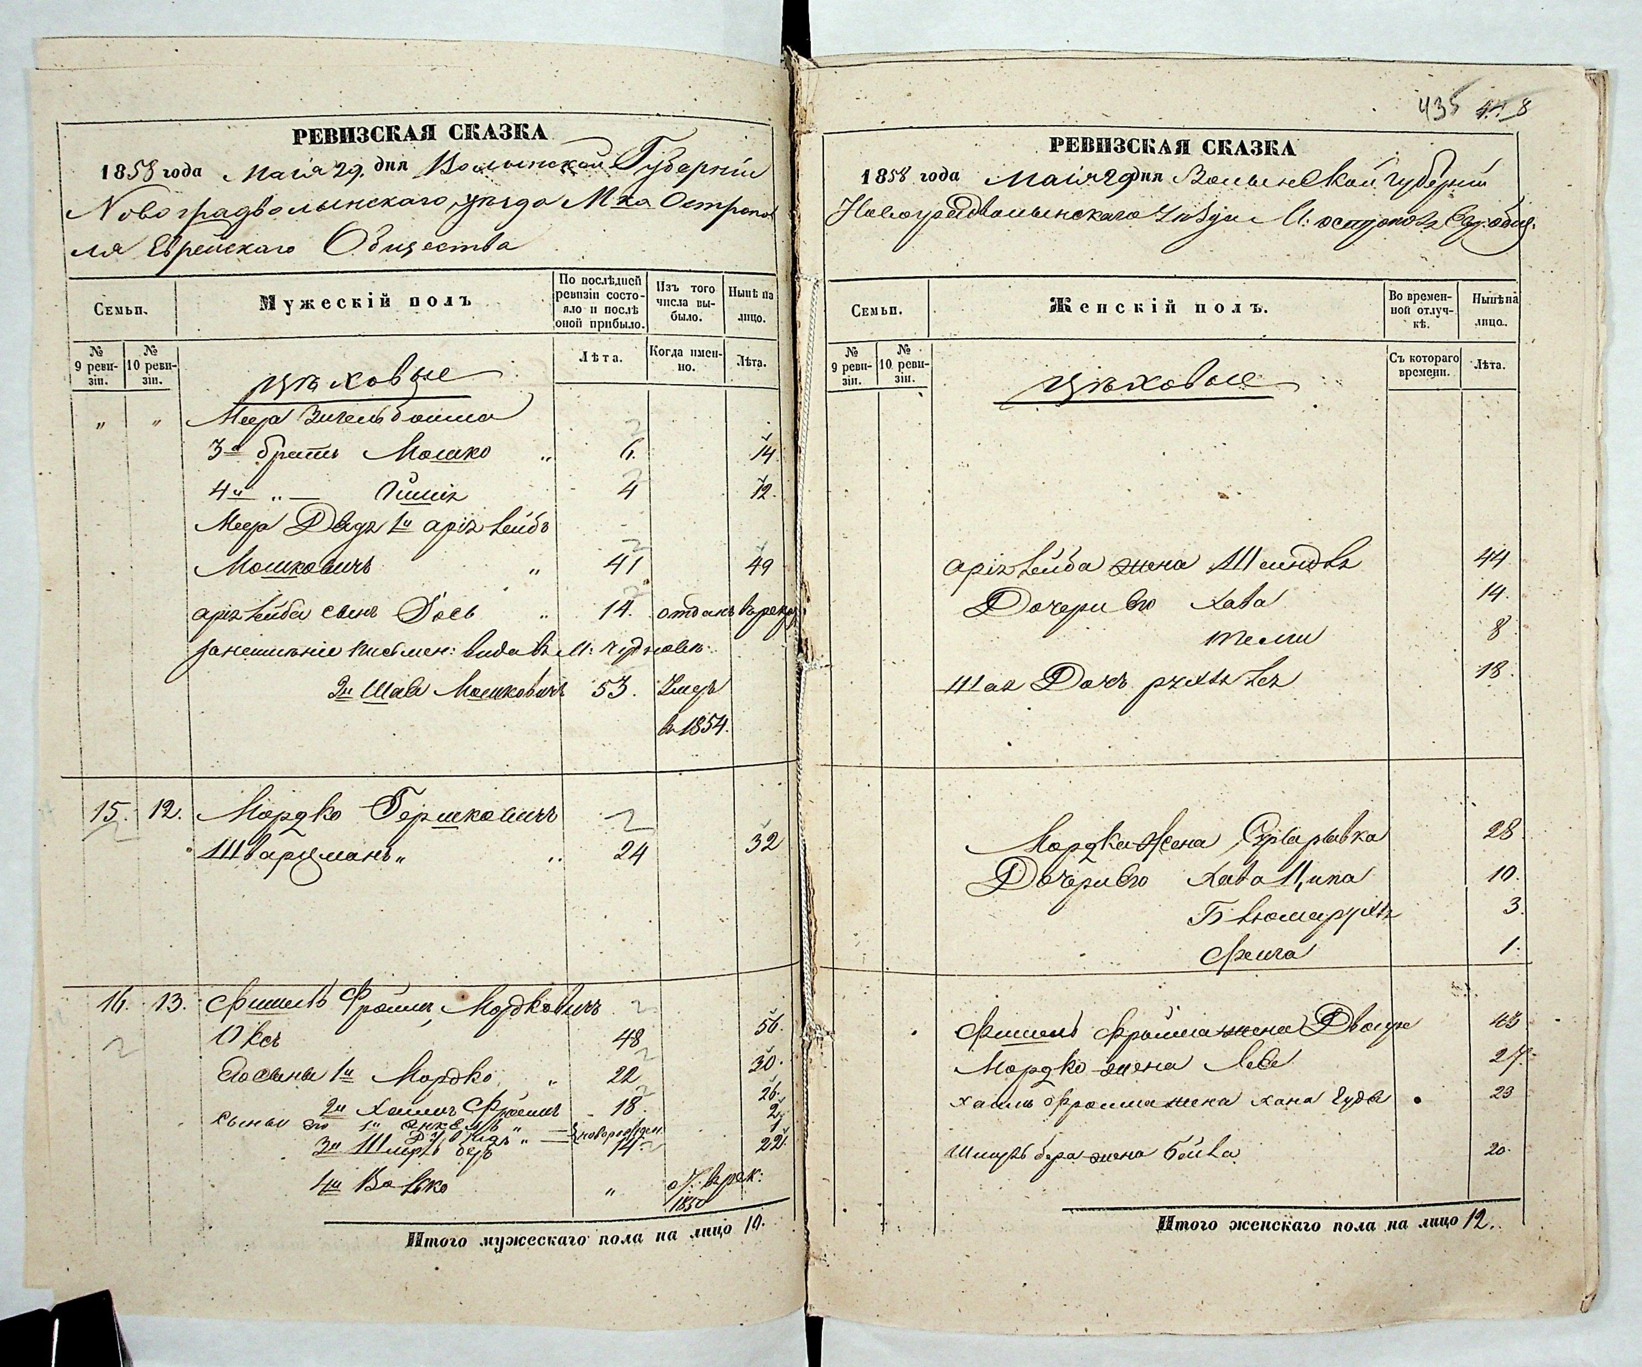 РЕВИЗСКАЯ СКАЗКА
1858 года Маія 29. дня Волынской Губерніи
Новоградволынскаго уѣзда М:ка Остропо
ля Еврейскаго Общества
Семьи.
Мужескій полъ
По послѣдней ревизіи состояло и послѣ оной прибыло.
Изъ того числа выбыло.
Нынѣ на лицо.
№ 9 ревизіи.
№ 10 ревизіи.
Лѣта.
Когда именно.
Лѣта.
Цѣховые
" " Меера
3й братъ Мошко „ 6. 14
4й „ — 4 12.
Меера Дядя 1й Аріе Лейбъ
Мошковичъ „ 41 49
Аріе Лейба сынъ Іось „ 14. отданъ въ рекру
за неимѣніе письмен: вида въ М: Чудновѣ
2й Шая Мошковичъ 53. Умеръ
въ 1854.
15. 12. Мордко Гершковичъ
Шварцманъ „ „ 24 32
16. 13. Фишель Фроимъ Мордковичъ
Оксъ 48 56.
Его сыны 1й Мордко „ 22 30.
2й Хаимъ Фроимъ 18 26.
сыны его 1й „ 2
Давидъ „ — новорожден 1
3й Шмуль Беръ 14 22.
4й Волько „ от. въ рек:
1850
Итого мужескаго пола на лицо 10.
435 448
РЕВИЗСКАЯ СКАЗКА
1858 года Маія 29 дня Волынской губерніи
Новоградволынскаго Уѣзда М: Острополя Евр. общ.
Семьи.
Женскій полъ.
Во временной отлучкѣ.
Нынѣ на лицо.
№ 9 ревизіи.
№ 10 ревизіи.
Съ котораго времени.
Лѣта.
Цѣховые
Аріе Лейба жена Шейндля 44
Дочери его Хава 14.
8
Шаи Дочь Рухля Лея 18.
Мордка Жена Сура Рывка 28
Дочери его Хава Ципа 10.
Блюма Рухля 3.
Фейга 1.
Фишель Фроима жена Двойра 43
Мордко жена 27.
Хаимъ Фроима жена Хана 23
Шмуль Бера жена Бейла 20.
Итого женскаго пола на лицо 12.